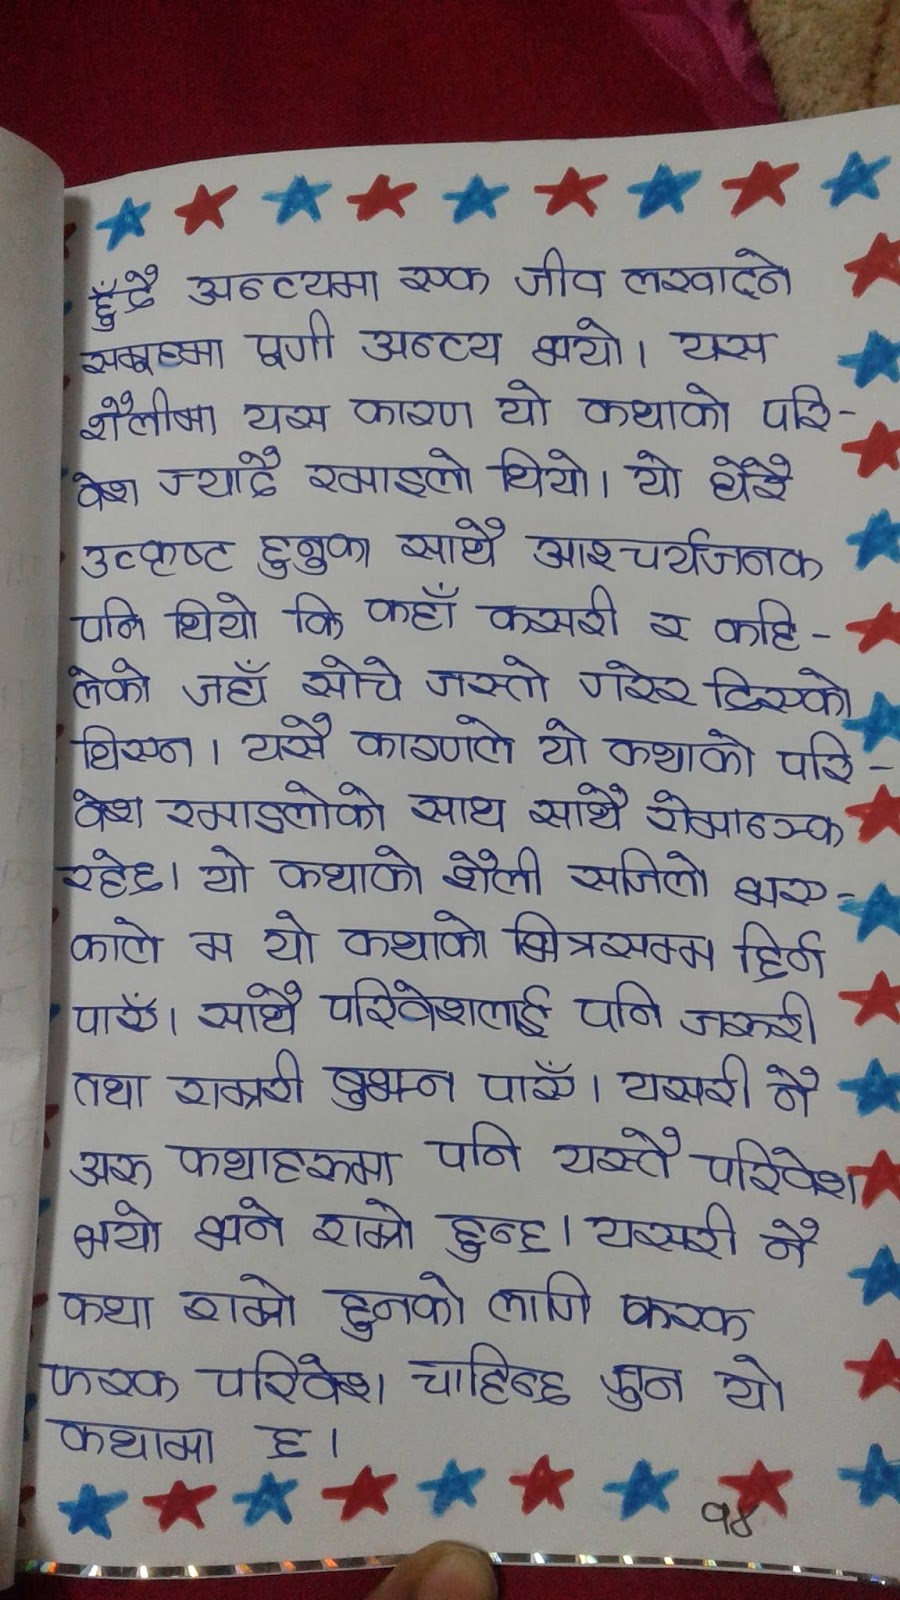 हुँदै अन्त्यमा एक जीव लखाद्ने
समूहमा पूर्ण अन्त्य भयो। यस
शैलीमा यस कारण यो कथाको परि-
वेश ज्यादै रमाइलो थियो। यो धेरै
उत्कृष्ट हुनुका साथै आश्चर्यजनक
पनि थियो कि कहाँ कसरी र कहि-
लेको जहाँ सोचे जस्तो गरेर टिस्को
थिएन। यसै कारणले यो कथाको परि-
वेश रमाइलोको साथ साथै रोमाञ्चक
रहेछ। यो कथाको शैली सजिलो भए-
काले म यो कथाको भित्रसम्म छिर्न
पाएँ। साथै परिवेशलाई पनि जरुरी
तथा राम्ररी बुझ्न पाएँ। यसरी नै
अरु कथाहरुमा पनि यस्तै परिवेश
भयो भने राम्रो हुन्छ। यसरी नै
कथा राम्रो हुनको लागि फरक
फरक परिवेश चाहिन्छ जुन यो
कथामा छ।
१४